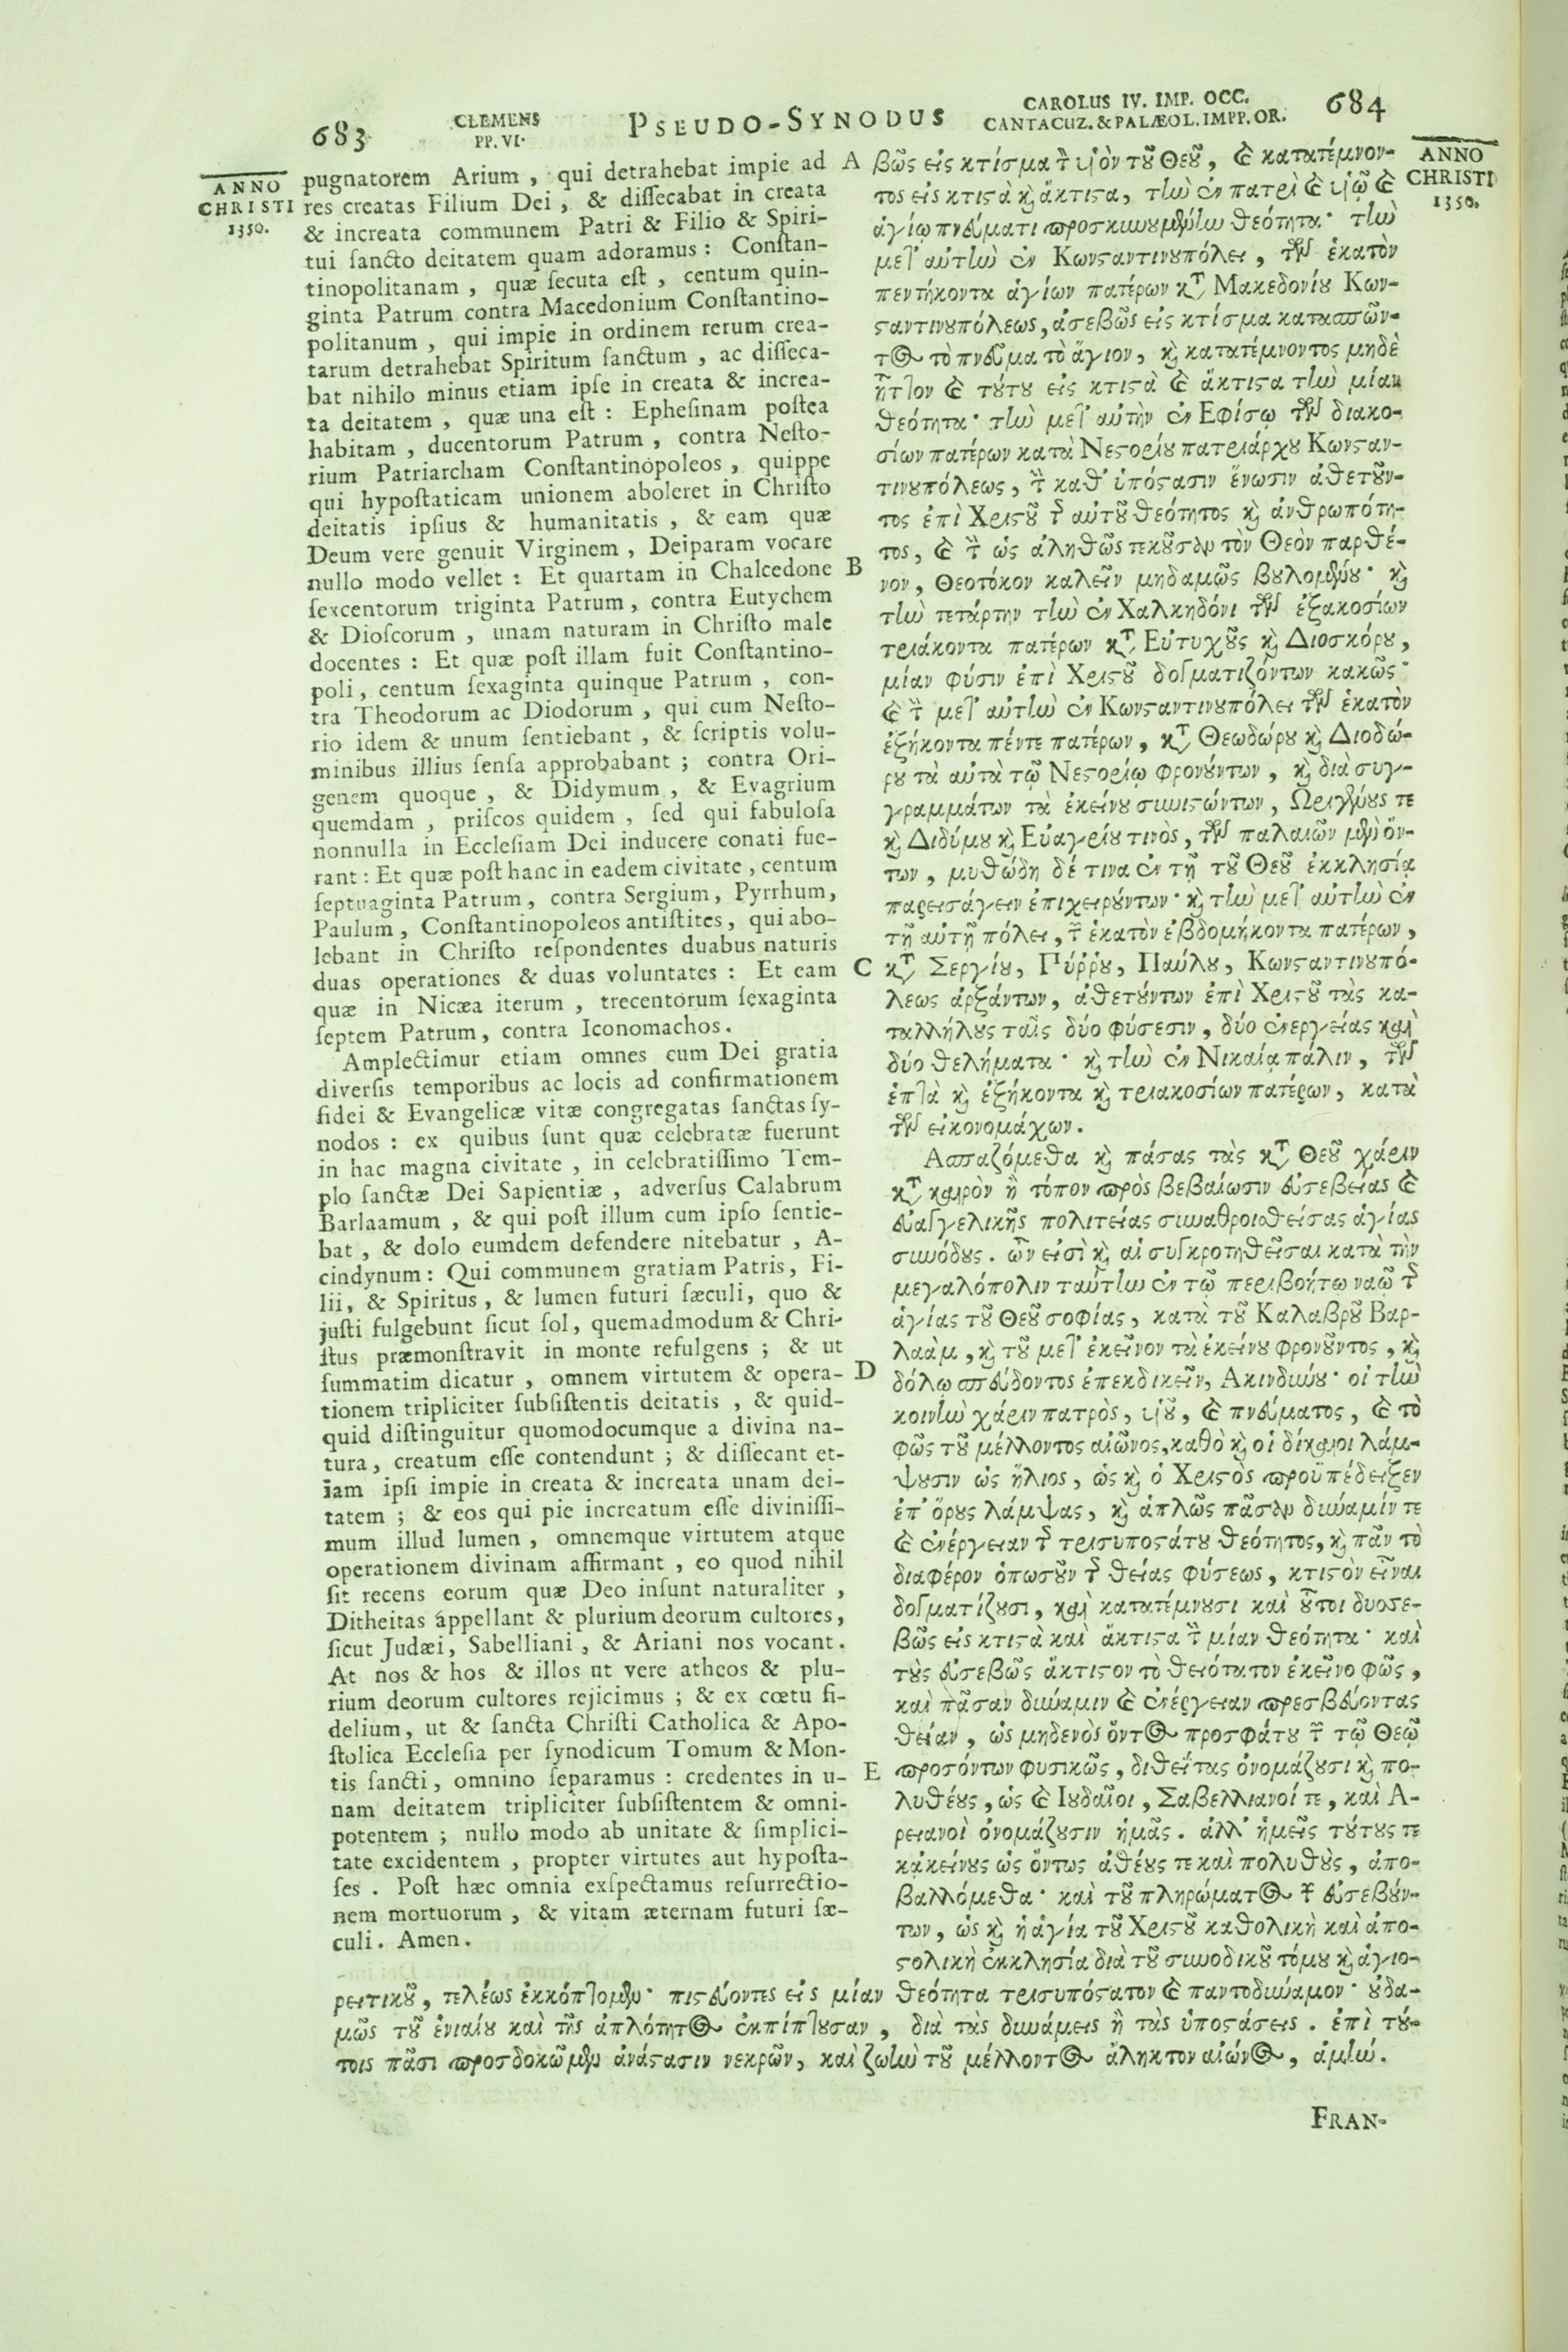 683
CLEMENS
PP. VI.
PSEUDO-SYNODUS
CAROLUS IV. IMP. OCC.
CANTACUZ. & PALÆOL. IMPP. OR.
684
ANNO
CHRISTI
1350.
pugnatorem Arium, qui detrahebat impie ad
res creatas Filium Dei, & dissecabat in creata
& increata communem Patri & Filio & Spiri-
tui sancto deitatem quam adoramus: Constan-
tinopolitanam, quæ secuta est, centum quin-
ginta Patrum contra Macedonium Constantino-
politanum, qui impie in ordinem rerum crea-
tarum detrahebat Spiritum sanctum, ac disseca-
bat nihilo minus etiam ipse in creata & increa-
ta deitatem, quæ una est: Ephesinam postea
habitam, ducentorum Patrum, contra Nesto-
rium Patriarcham Constantinopoleos, quippe
qui hypostaticam unionem aboleret in Christo
deitatis ipsius & humanitatis, & eam quæ
Deum vere genuit Virginem, Deiparam vocare
nullo modo vellet: Et quartam in Chalcedone
sexcentorum triginta Patrum, contra Eutychem
& Dioscorum, unam naturam in Christo male
docentes: Et quæ post illam fuit Constantino-
poli, centum sexaginta quinque Patrum, con-
tra Theodorum ac Diodorum, qui cum Nesto-
rio idem & unum sentiebant, & scriptis volu-
minibus illius sensa approbabant; contra Ori-
genem quoque, & Didymum, & Evagrium
quemdam, priscos quidem, sed qui fabulosa
nonnulla in Ecclesiam Dei inducere conati fue-
rant: Et quæ post hanc in eadem civitate, centum
septuaginta Patrum, contra Sergium, Pyrrhum,
Paulum, Constantinopoleos antistites, qui abo-
lebant in Christo respondentes duabus naturis
duas operationes & duas voluntates: Et eam
quæ in Nicæa iterum, trecentorum sexaginta
septem Patrum, contra Iconomachos.
Amplectimur etiam omnes cum Dei gratia
diversis temporibus ac locis ad confirmationem
fidei & Evangelicæ vitæ congregatas sanctas sy-
nodos: ex quibus sunt quæ celebratæ fuerunt
in hac magna civitate, in celebratissimo Tem-
plo sanctæ Dei Sapientiæ, adversus Calabrum
Barlaamum, & qui post illum cum ipso sentie-
bat, & dolo eumdem defendere nitebatur, A-
cindynum: Qui communem gratiam Patris, Fi-
lii, & Spiritus, & lumen futuri sæculi, quo &
justi fulgebunt sicut sol, quemadmodum & Chri-
stus præmonstravit in monte refulgens; & ut
summatim dicatur, omnem virtutem & opera-
tionem tripliciter subsistentis deitatis, & quid-
quid distinguitur quomodocumque a divina na-
tura, creatum esse contendunt; & dissecant et-
iam ipsi impie in creata & increata unam dei-
tatem; & eos qui pie increatum esse divinissi-
mum illud lumen, omnemque virtutem atque
operationem divinam affirmant, eo quod nihil
sit recens eorum quæ Deo insunt naturaliter,
Ditheitas appellant & plurium deorum cultores,
sicut Judæi, Sabelliani, & Ariani nos vocant.
At nos & hos & illos ut vere atheos & plu-
rium deorum cultores rejicimus; & ex cœtu fi-
delium, ut & sancta Christi Catholica & Apo-
stolica Ecclesia per synodicum Tomum & Mon-
tis sancti, omnino separamus: credentes in u-
nam deitatem tripliciter subsistentem & omni-
potentem; nullo modo ab unitate & simplici-
tate excidentem, propter virtutes aut hyposta-
ses. Post hæc omnia exspectamus resurrectio-
nem mortuorum, & vitam æternam futuri sæ-
culi. Amen.
A
B
C
D
E
ANNO
CHRISTI
1350.
βῶς εἰς κτίσμα τὸν υἱὸν τοῦ Θεοῦ, καὶ κατατέμνον-
τος εἰς κτιστὰ καὶ ἄκτιστα, τὴν ἐν πατρὶ καὶ υἱῷ καὶ
ἁγίῳ πνεύματι προσκυνουμένην θεότητα· τὴν
μετ' αὐτὴν ἐν Κωνσταντινουπόλει, τῶν ἑκατὸν
πεντήκοντα ἁγίων πατέρων κατὰ Μακεδονίου Κων-
σταντινουπόλεως, ἀσεβῶς εἰς κτίσμα κατασπῶν-
τος τὸ πνεῦμα τὸ ἅγιον, καὶ κατατέμνοντος μηδὲ
ἧττον καὶ τούτου εἰς κτιστὰ καὶ ἄκτιστα τὴν μίαν
θεότητα· τὴν μετ' αὐτὴν ἐν Εφέσῳ τῶν διακο-
σίων πατέρων κατὰ Νεστορίου πατριάρχου Κωνσταν-
τινουπόλεως, τὴν καθ' ὑπόστασιν ἕνωσιν ἀθετοῦν-
τος ἐπὶ Χριστοῦ τῆς αὐτοῦ θεότητος καὶ ἀνθρωπότη-
τος, καὶ τὴν ὡς ἀληθῶς τεκοῦσαν τὸν Θεὸν παρθέ-
νον, Θεοτόκον καλεῖν μηδαμῶς βουλομένου· καὶ
τὴν τετάρτην τὴν ἐν Χαλκηδόνι τῶν ἑξακοσίων
τριάκοντα πατέρων κατὰ Εὐτυχοῦς καὶ Διοσκόρου,
μίαν φύσιν ἐπὶ Χριστοῦ δογματιζόντων κακῶς·
καὶ τὴν μετ' αὐτὴν ἐν Κωνσταντινουπόλει τῶν ἑκατὸν
ἑξήκοντα πέντε πατέρων, κατὰ Θεωδώρου καὶ Διοδώ-
ρου τὰ αὐτὰ τῷ Νεστορίῳ φρονούντων, καὶ διὰ συγ-
γραμμάτων τὰ ἐκείνου συνιστώντων, Ωριγένους τε
καὶ Διδύμου καὶ Εὐαγρίου τινὸς, τῶν παλαιῶν μὲν ὄν-
των, μυθώδη δέ τινα ἐν τῇ τοῦ Θεοῦ ἐκκλησίᾳ
παρεισάγειν ἐπιχειρούντων· καὶ τὴν μετ' αὐτὴν ἐν
τῇ αὐτῇ πόλει, τῶν ἑκατὸν ἑβδομήκοντα πατέρων,
κατὰ Σεργίου, Πύῤῥου, Παύλου, Κωνσταντινουπό-
λεως ἀρξάντων, ἀθετούντων ἐπὶ Χριστοῦ τὰς κα-
ταλλήλους ταῖς δύο φύσεσιν, δύο ἐνεργείας καὶ
δύο θελήματα· καὶ τὴν ἐν Νικαίᾳ πάλιν, τῶν
ἑπτὰ καὶ ἑξήκοντα καὶ τριακοσίων πατέρων, κατὰ
τῶν εἰκονομάχων.
Ασπαζόμεθα καὶ πάσας τὰς κατὰ Θεοῦ χάριν
κατὰ καιρὸν ἢ τόπον πρὸς βεβαίωσιν εὐσεβείας καὶ
εὐαγγελικῆς πολιτείας συναθροισθείσας ἁγίας
συνόδους. ὧν εἰσὶ καὶ αἱ συγκροτηθεῖσαι κατὰ τὴν
μεγαλόπολιν ταύτην ἐν τῷ περιβοήτῳ ναῷ τῆς
ἁγίας τοῦ Θεοῦ σοφίας, κατὰ τοῦ Καλαβροῦ Βαρ-
λαὰμ, καὶ τοῦ μετ' ἐκεῖνον τὰ ἐκείνου φρονοῦντος, καὶ
δόλῳ σπεύδοντος ἐπεκδικεῖν, Ακινδύνου· οἱ τὴν
κοινὴν χάριν πατρὸς, υἱοῦ, καὶ πνεύματος, καὶ τὸ
φῶς τοῦ μέλλοντος αἰῶνος, καθὸ καὶ οἱ δίκαιοι λάμ-
ψουσιν ὡς ἥλιος, ὡς καὶ ὁ Χριστὸς προϋπέδειξεν
ἐπ' ὄρους λάμψας, καὶ ἁπλῶς πᾶσαν δύναμίν τε
καὶ ἐνέργειαν τῆς τρισυποστάτου θεότητος, καὶ πᾶν τὸ
διαφέρον ὁπωσοῦν τῆς θείας φύσεως, κτιστὸν εἶναι
δογματίζουσι, καὶ κατατέμνουσι καὶ οὗτοι δυσσε-
βῶς εἰς κτιστὰ καὶ ἄκτιστα τὴν μίαν θεότητα· καὶ
τοὺς εὐσεβῶς ἄκτιστον τὸ θειότατον ἐκεῖνο φῶς,
καὶ πᾶσαν δύναμιν καὶ ἐνέργειαν πρεσβεύοντας
θείαν, ὡς μηδενὸς ὄντος προσφάτου τῶν τῷ Θεῷ
προσόντων φυσικῶς, διθεΐτας ὀνομάζουσι καὶ πο-
λυθέους, ὡς καὶ Ιουδαῖοι, Σαβελλιανοί τε, καὶ Α-
ρειανοὶ ὀνομάζουσιν ἡμᾶς. ἀλλ' ἡμεῖς τούτους τε
κἀκείνους ὡς ὄντως ἀθέους τε καὶ πολυθοὺς, ἀπο-
βαλλόμεθα· καὶ τοῦ πληρώματος τῶν εὐσεβούν-
των, ὡς καὶ ἡ ἁγία τοῦ Χριστοῦ καθολικὴ καὶ ἀπο-
στολικὴ ἐκκλησία διὰ τοῦ συνοδικοῦ τόμου καὶ ἁγιο-
ρειτικοῦ, τελέως ἐκκόπτομεν· πιστεύοντες εἰς μίαν θεότητα τρισυπόστατον καὶ παντοδύναμον· οὐδα-
μῶς τοῦ ἑνιαίου καὶ τῆς ἁπλότητος ἐκπίπτουσαν, διὰ τὰς δυνάμεις ἢ τὰς ὑποστάσεις. ἐπὶ τού-
τοις πᾶσι προσδοκῶμεν ἀνάστασιν νεκρῶν, καὶ ζωὴν τοῦ μέλλοντος ἄληκτον αἰῶνος, ἀμήν.
FRAN-